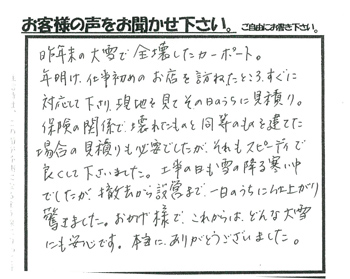 お客様の声をお聞かせ下さい。ご自由にお書き下さい。
昨年末の大雪で全壊したカーポート。
年明け、仕事初めのお店を訪ねたところ、すぐに
対応して下さり、現地を見てその日のうちに見積り。
保険の関係で、壊れたものと同等のものを建てた
場合の見積りも必要でしたが、それもスピーディで
良くして下さいました。工事の日も雪の降る寒い中
でしたが、撤去から設営まで、一日のうちに仕上がり
驚きました。おかげ様で、これからは、どんな大雪
にも安心です。本当に、ありがとうございました。